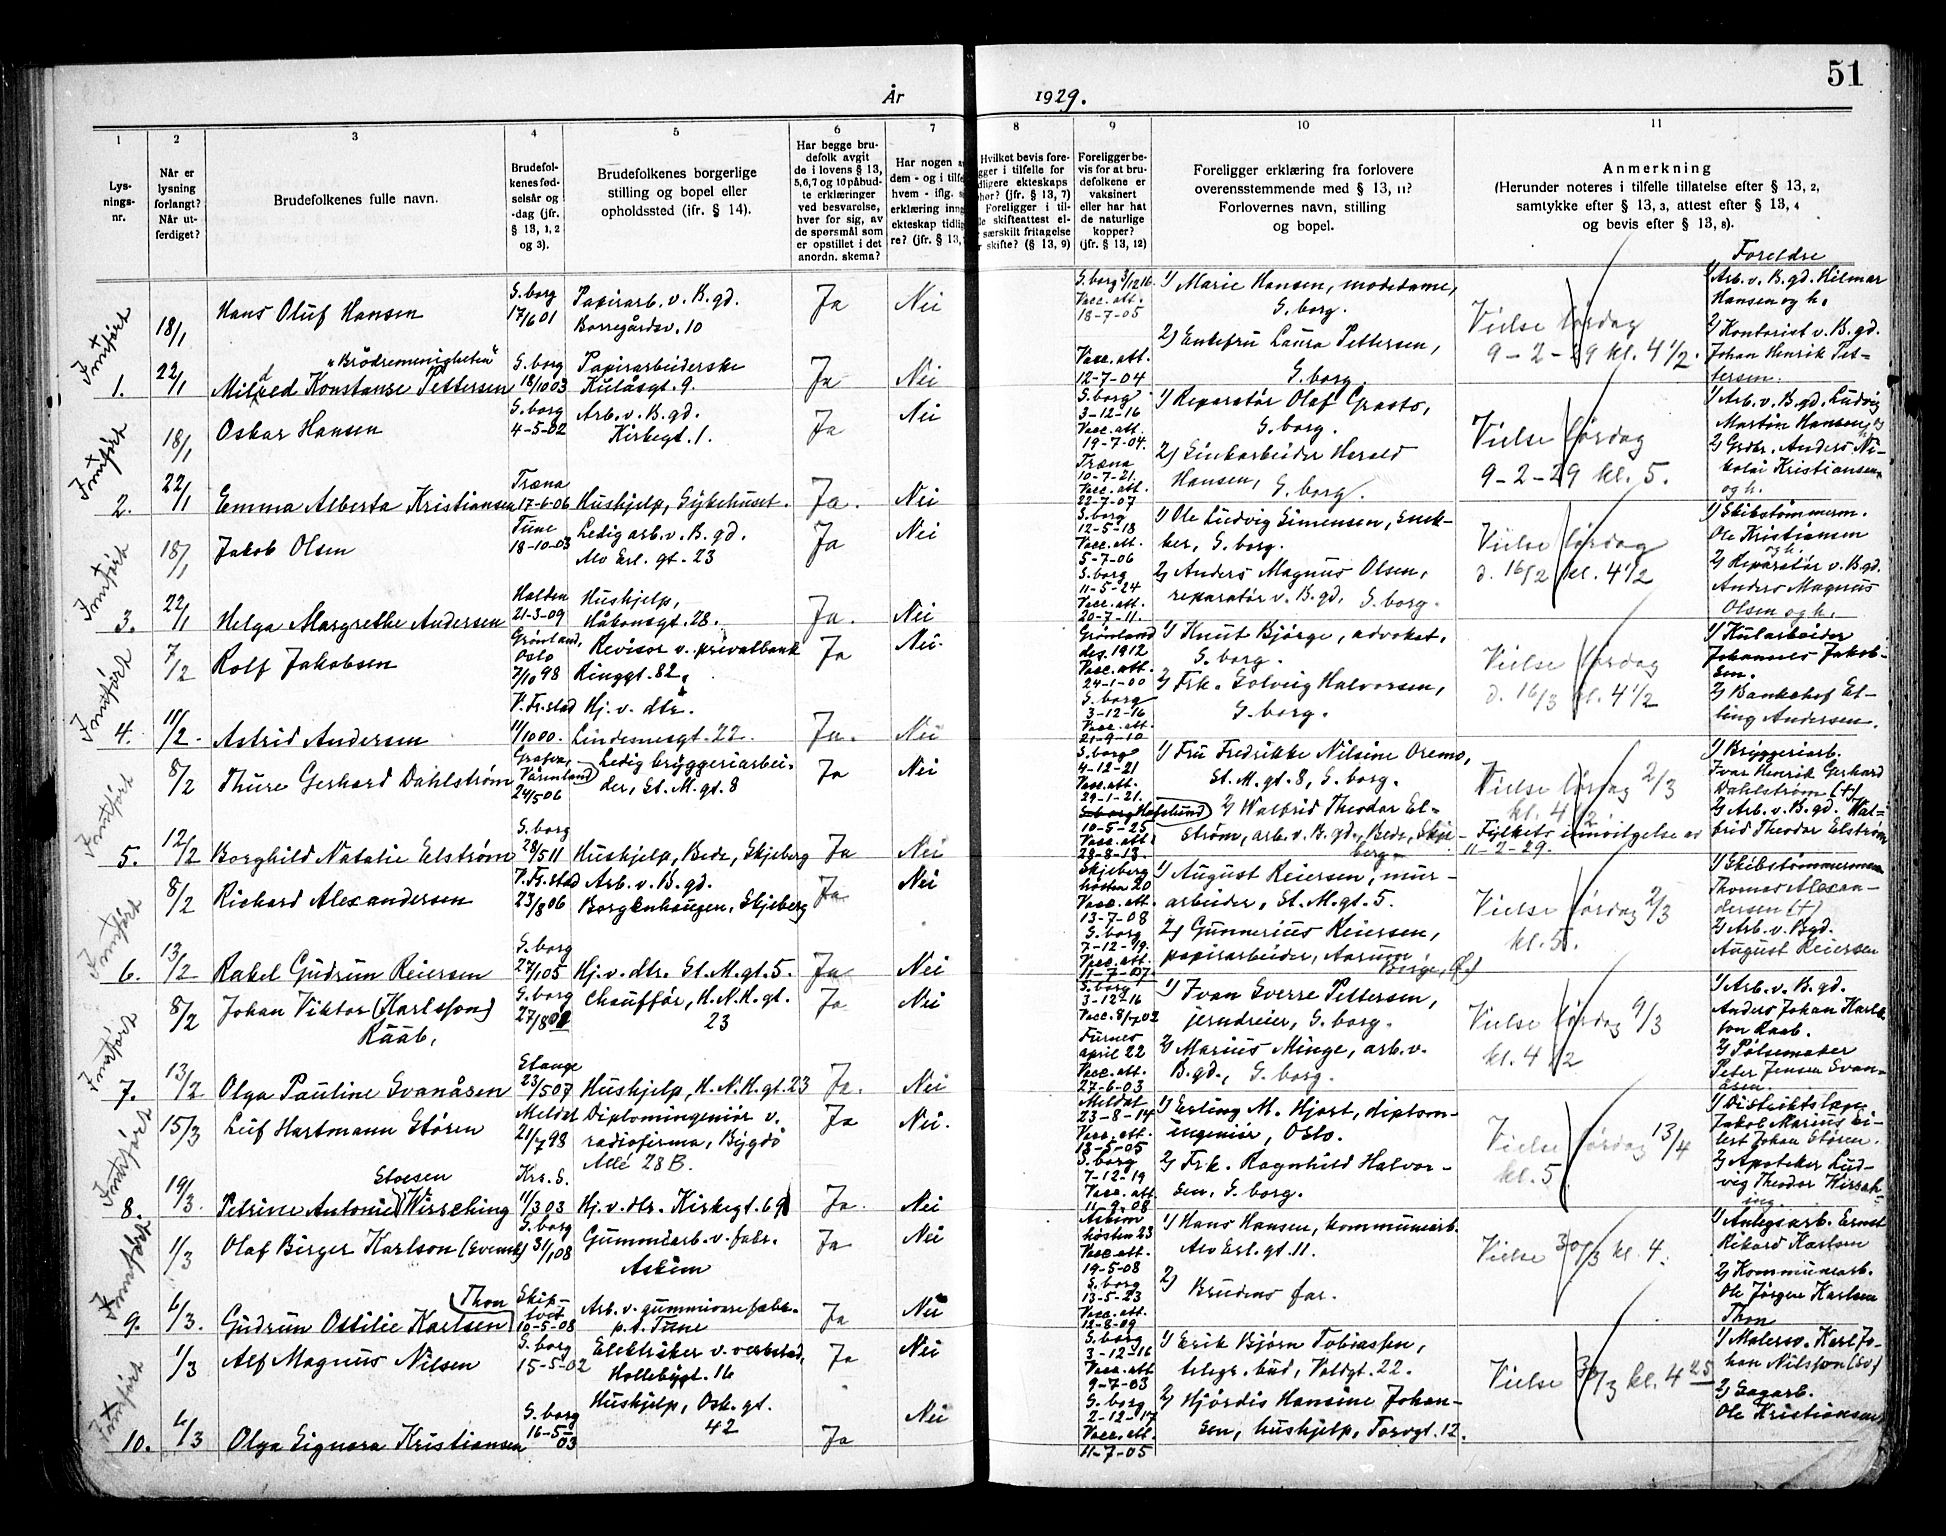 51
År 1929.
1 2 3 4 5 6 7 8 9 10 11
Lys-
nings-
nr.
Når er
lysning
forlangt?
Når ut-
ferdiget?
Brudefolkenes fulle navn.
Brudefol-
kenes fød-
selsår og
-dag (jfr.
§ 13, 1, 2
og 3).
Brudefolkenes borgerlige
stilling og bopel eller
opholdssted (jfr. § 14).
Har begge bru-
defolk avgit
de i lovens § 13,
5,6,7 og 10 påbud-
te erklæringer
ved besvarelse,
hver for sig, av
de spørsmål som
er opstillet i det
anordn. skema?
Har nogen a
dem - og i tilfe
hvem - iflg.
erklæring inng
ekteskap tidlig
re? (jfr. § 13,
Hvilket bevis fore-
gger i tilfelle for
dligere ekteskaps
hør? (jfr. § 13, 7)
Foreligger i til-
le skifteattest el-
særskilt fritagelse
skifte? (§ 13, 9)
Foreligger be-
vis for at bru-
defolkene er
vaksinert
eller har hat
de naturlige
kopper?
(jfr. § 13, 12)
Foreligger erklæring fra forlovere
overensstemmende med § 13, 11?
Forlovernes navn, stilling
og bopel.
Anmerkning
(Herunder noteres i tilfelle tillatelse efter § 13, 2,
samtykke efter § 13, 3, attest efter § 13, 4
og bevis efter § 13, 8).
Foreldre
Inntført
1.
18/1
22/1
Hans Oluf Hansen
"Brödremenigheten"
Mildred Konstanse Pettersen
S.borg
17/6 01
S.borg
18/10 03
Papirarb. v. B.gd.
Borregårdsv. 10
Papirarbeiderske
Kulåsgt. 9.
Ja
Ja
Nei
Nei
S.borg 3/12 16
Vacc. att.
18-7-05
Vacc. att.
12-7-04
1) Marie Hansen, modedame,
S.borg.
2) Enkefru Laura Pettersen,
S.borg.
Vielse lørdag
9-2-29 kl. 4 1/2.
1) Arb. v. B.gd. Hilmar
Hansen og h.
2) Kontorist v. B.gd.
Johan Henrik Pet-
tersen.
Inntført
2.
18/1
22/1
Oskar Hansen
Emma Alberta Kristiansen
S.borg
4-5-02
Træna
17-6-06
Arb. v. B.gd.
Kirkegt. 1.
Hushjelp, Sykehuset.
Ja
Ja.
Nei
Nei
S.borg
3-12-16
Vacc. att.
19-7-04.
Træna
10-7-21.
Vacc. att.
22-7-07
1) Reparatør Olaf Grasto,
S.borg.
2) Sinkarbeider Harald
Hansen, S.borg.
Vielse lørdag
9-2-29 kl. 5.
1) Arb. v. B.gd. Ludvig
Martin Hansen og
h.
2) Grdbr. Anders Ni-
kolai Kristiansen
og h.
Inntført
3.
18/1
22/1
Jakob Olsen
Helga Margrethe Andersen
Tune
18-10-03
Halden
21-3-09
Ledig arb. v. B.gd.
Alv Erl. gt. 23
Hushjelp,
Håkonsgt. 28.
Ja
Ja.
Nei
Nei
S.borg
12-5-18
Vacc. att.
5-7-06
S.borg
11-5-24
Vacc. att.
20-7-11.
1) Ole Ludvig Simensen, snek-
ker, S.borg.
2) Anders Magnus Olsen,
reparatør v. B.gd, S.borg.
Vielse lørdag
d. 16/2 kl. 4 1/2
1) Skibstømmerm.
Ole Kristiansen
og h.
2) Reparatør v. B.gd.
Anders Magnus
Olsen og h.
Inntført
4.
7/2
11/2.
Rolf Jakobsen
Astrid Andersen
Grønland,
Oslo
7/10 98
V.Fr.stad
11/10 00.
Revisor v. privatbank
Ringgt. 82.
Hj. v. dtr.
Lindesnesgt. 22.
Ja
Ja.
Nei.
Nei
Grønland
des. 1912
Vacc. att.
24-1-00
S.borg
3-12-16
Vacc. att.
21-9-10
1) Knut Bjørge, advokat,
S.borg.
2) Frk. Solveig Halvorsen,
S.borg.
Vielse lørdag
d. 16/3 kl. 4 1/2
1) Kularbeider
Johannes Jakob-
sen.
2) Bankchef El-
ling Andersen.
Inntført
5.
8/2
12/2
Thure Gerhard Dahlstrøm
Borghild Natalie Elstrøm
Grafva,
Värmland
24/5 06
S.borg
28/5 11
Ledig bryggeriarbei-
der, St. M. gt. 8
Hushjelp, Bede, Skjeberg
Ja
Ja
Nei
Nei
S.borg
4-12-21
Vacc. att.
29-1-21.
S.borg Hafslund
10-5-25
Vacc. att.
28-8-13.
1) Fru Fredrikke Nilsine Oremo,
St. M. gt. 8, S.borg.
2) Walfrid Theodor El-
strøm, arb. v. B.gd., Bede, Skje-
berg
Vielse lørdag 2/3
kl. 4 1/2.
Fylkets innvilgelse av
11-2-29.
1) Bryggeriarb.
Ivar Henrik Gerhard
Dahlstrøm (+)
2) Arb. v. B.gd. Wal-
frid Theodor Elstrøm
Inntført
6.
8/2
13/2
Richard Alexandersen
Rakel Gudrun Reiersen
V.Fr.stad
23/8 06
S.borg
27/1 05
Arb. v. B.gd.
Borgenhaugen, Skjeberg
Hj. v. dtr. St. M. gt. 5.
Ja
Ja
Nei
Nei
Skjeberg
høsten 20
Vacc. att.
13-7-08
S.borg
7-12-19.
Vacc. att.
11-7-07.
1) August Reiersen, mur-
arbeider, St. M. gt. 5.
2) Gunnerius Reiersen,
papirarbeider, Aarum
Borge, (Ø.)
Vielse lørdag 2/3
kl. 5.
1) Skibstømmermann
Thomas Alexan-
dersen (+)
2) Arb. v. B.gd.
August Reiersen
Inntført
7.
8/2
13/2
Johan Viktor (Karlsson)
Rääb,
Olga Pauline Svanåsen
S.borg
27/8 01
Stange
23/5 07
Chauffør, H. N. H. gt.
23
Hushjelp, H. N. H. gt. 23
Ja
Ja.
Nei
Nei
S.borg
3-12-16
Vacc. 8/7 02
Furnes
april 22
Vacc. att.
27-6-03
1) Ivan Sverre Pettersen,
jerndreier, S.borg.
2) Marius Minge, arb. v.
B.gd., S.borg.
Vielse lørdag 9/3
kl. 4 1/2
1) Arb. v. B.gd.
Anders Johan Karls-
son Raab.
2) Pølsemaker
Peter Jensen Svan-
åsen.
Inntført
8.
15/3
19/3.
Leif Hartmann Støren
Stoesen
Petrine Antonie Wirsching
Meldal
21/7 98
Krs. S.
11/3 03
Diplomingeniør v.
radiofirma, Bygdö
Allé 28 B.
Hj. v. dtr. Kirkegt. 69
Ja
Ja.
Nei.
Nei
Meldal
23-8-14
Vacc. att.
13-5-05
S.borg
7-12-19
Vacc. att.
11-9-08
1) Erling M. Hjort, diplom-
ingeniør, Oslo.
2) Frk. Ragnhild Halvor-
sen, S.borg.
Vielse lørdag 13/4
kl. 5
1) Distriktslæge
Jakob Marius Ei-
lert Johan Støren.
2) Apoteker Lud-
vig Theodor Wirsch-
ing
Inntført
9.
1/3
6/3.
Olaf Birger Karlson (Svensk)
Thon
Gudrun Ottilie Karlsen
S.borg
31/1 08
Skip-
tvet
10-5-08
Gummiarb. v. fabr.
Askim
Arb. v. gummivarefabr.
p.t. Tune
Ja
Ja
Nei
Nei
Askim
høsten 23
Vacc. att.
19-5-08
S.borg
13-5-23
Vacc. att.
12-8-09
1) Hans Hansen, kommunearb.
Alv Erl. gt. 11.
2)
Brudens far.
Vielse 30/3 kl. 4.
1) Anlegsarb. Ernst
Rikard Karlsen
2) Kommunearb.
Ole Jørgen Karlsen
Thon
Inntført
10.
1/3
6/3
Alf Magnus Nilsen
Olga Signora Kristiansen
S.borg
15-5-02
S.borg
16-5-
03
Elektriker v. verksted,
Hollebygt. 16
Hushjelp, Osk. gt.
42
Ja
Ja
Nei
Nei
S.borg
3-12-16
Vacc. att.
9-7-03
S.borg
2-12-17
Vacc. att.
11-7-05
1) Erik Bjørn Tobiassen,
telegr. bud, Voldgt. 22.
2) Hjørdis Hansine Johan-
sen, hushjelp, Torvgt. 12.
Vielse 30/3 kl. 4 25
1) Malersv. Karl Jo-
han Nilsson (sv.)
2) Sagarb.
Ole Kristiansen